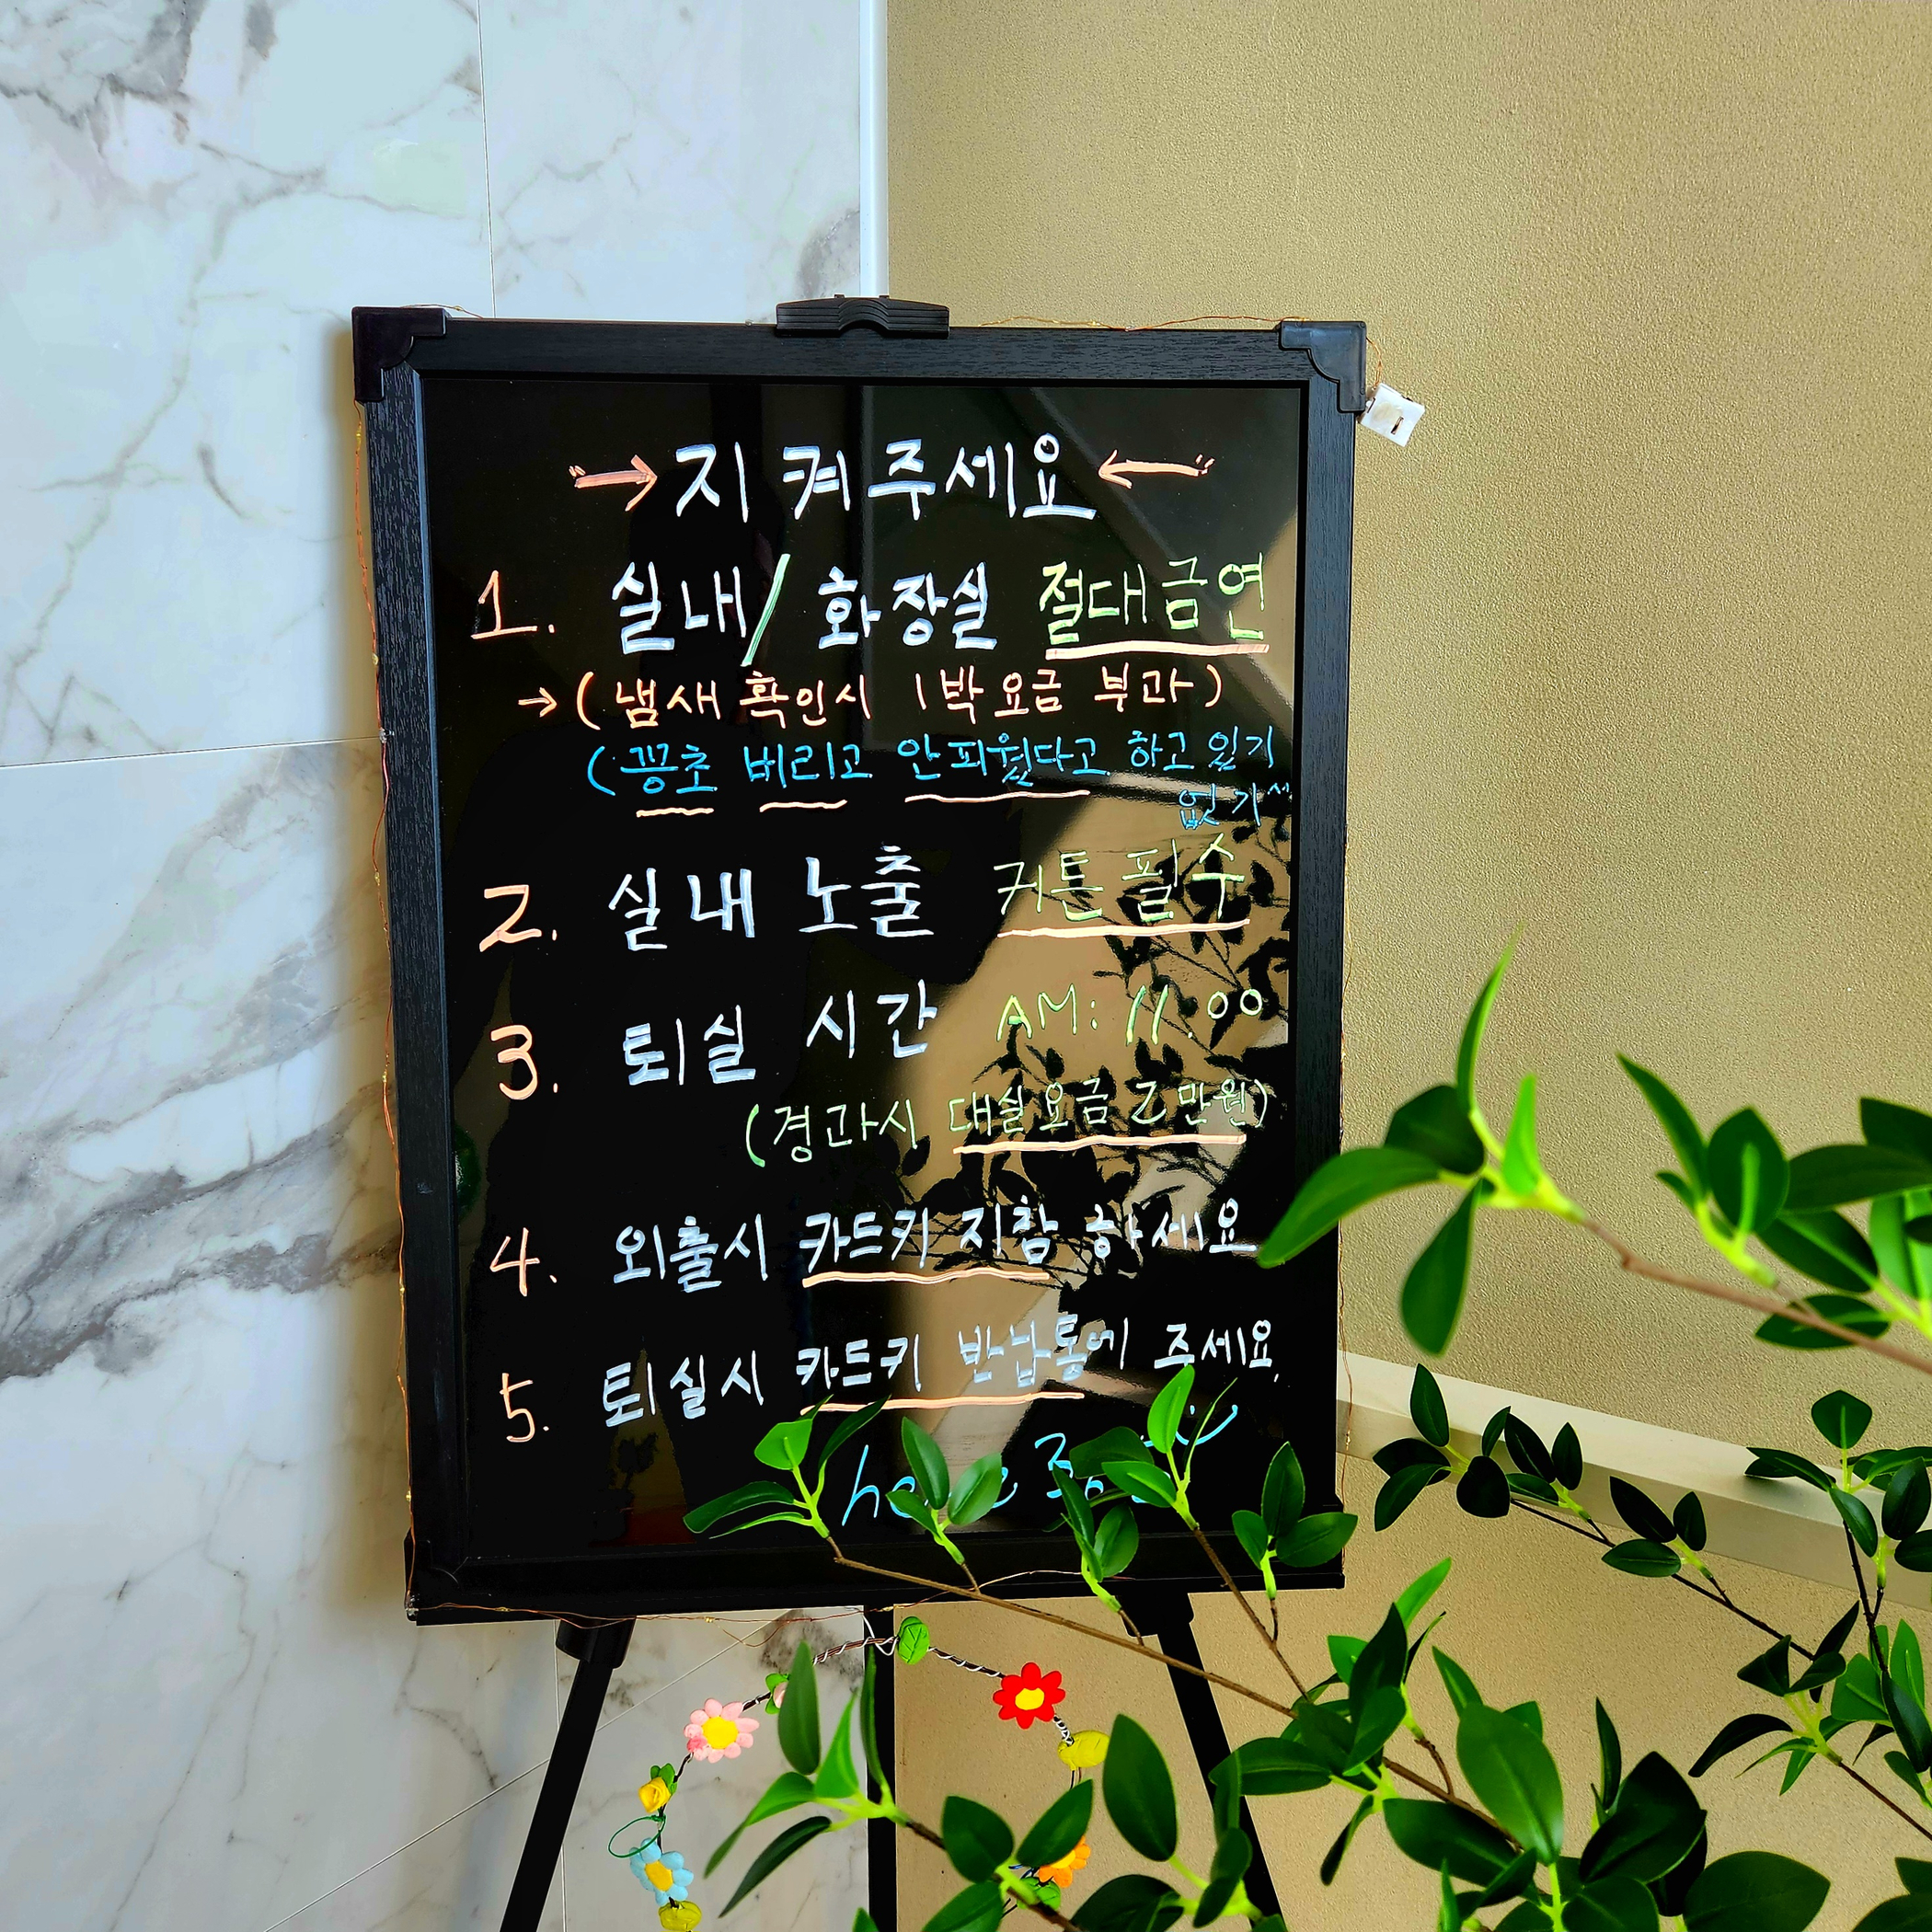 → 지켜주세요 ←
1. 실내/화장실 절대금연
→ (냄새 확인시 1박요금 부과)
(꽁초 버리고 안피웠다고 하고 있기
없기
2. 실내 노출 커튼 필수
3. 퇴실 시간 AM: 11:00
(경과시 대실요금 2만원)
4. 외출시 카드키 지참 하세요
5. 퇴실시 카드키 반납통에 주세요.